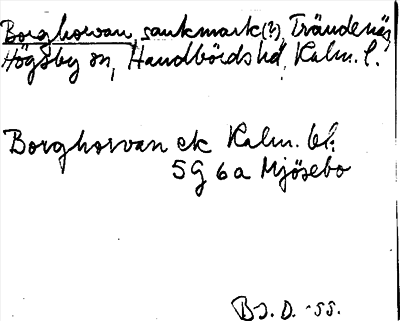 Borghorvan, sankmark(?), Trändenäs,
Högsby sn, Handbörds hd, Kalm. l.
Borghorvan ek Kalm. bl:
5G 6a Mjösebo
BJ.D. -55.